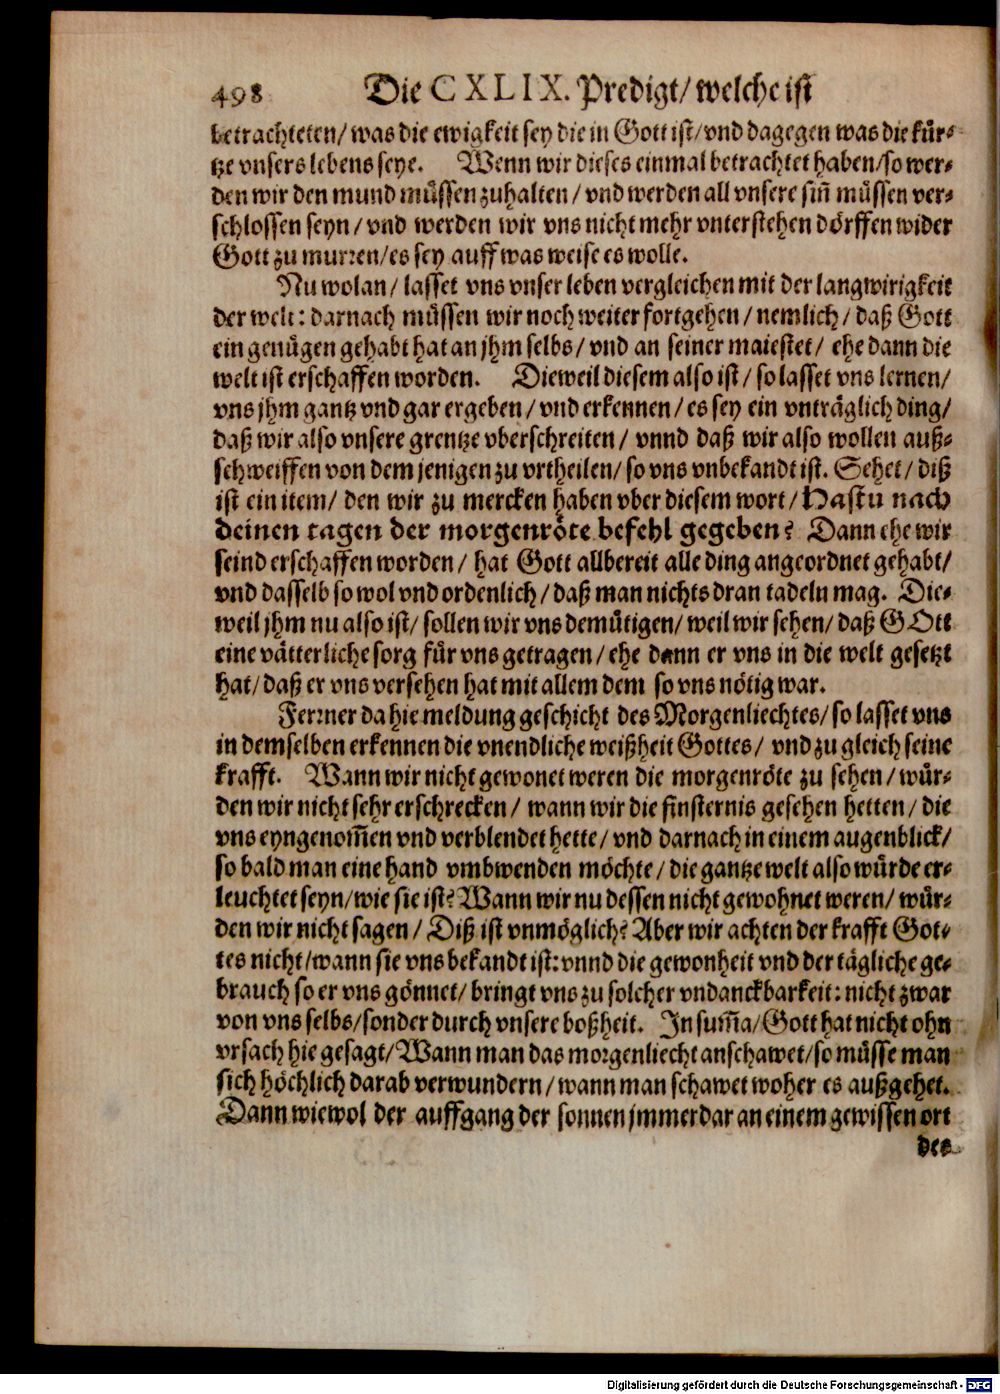 498 Die CXLIX. Predigt/ welche ist
betrachteten/ was die ewigkeit sey die in Gott ist/ vnd dagegen was die kür-
tze vnsers lebens seye. Wenn wir dieses einmal betrachtet haben/ so wer-
den wir den mund müssen zuhalten/ vnd werden all vnsere siñ müssen ver-
schlossen seyn/ vnd werden wir vns nicht mehr vnterstehen dörffen wider
Gott zu murren/ es sey auff was weise es wolle.
Nu wolan/ lasset vns vnser leben vergleichen mit der langwirigkeit
der welt: darnach müssen wir noch weiter fortgehen/ nemlich/ daß Gott
ein genügen gehabt hat an jhm selbs/ vnd an seiner maiestet/ ehe dann die
welt ist erschaffen worden. Dieweil diesem also ist/ so lasset vns lernen/
vns jhm gantz vnd gar ergeben/ vnd erkennen/ es sey ein vnträglich ding/
daß wir also vnsere grentze vberschreiten/ vnnd daß wir also wollen auß-
schweiffen von dem jenigen zu vrtheilen/ so vns vnbekandt ist. Sehet/ diß
ist ein item/ den wir zu mercken haben vber diesem wort/ Hastu nach
deinen tagen der morgenröte befehl gegeben? Dann ehe wir
seind erschaffen worden/ hat Gott allbereit alle ding angeordnet gehabt/
vnd dasselb so wol vnd ordenlich/ daß man nichts dran tadeln mag. Die-
weil jhm nu also ist/ sollen wir vns demütigen/ weil wir sehen/ daß GOtt
eine vätterliche sorg für vns getragen/ ehe dann er vns in die welt gesetzt
hat/ daß er vns versehen hat mit allem dem so vns nötig war.
Ferrner da hie meldung geschicht des Morgenliechtes/ so lasset vns
in demselben erkennen die vnendliche weißheit Gottes/ vnd zu gleich seine
krafft. Wann wir nicht gewonet weren die morgenröte zu sehen/ wür-
den wir nicht sehr erschrecken/ wann wir die finsternis gesehen hetten/ die
vns eyngenom̃en vnd verblendet hette/ vnd darnach in einem augenblick/
so bald man eine hand vmbwenden möchte/ die gantze welt also würde er-
leuchtet seyn/ wie sie ist? Wann wir nu dessen nicht gewohnet weren/ wür-
den wir nicht sagen/ Diß ist vnmöglich? Aber wir achten der krafft Got-
tes nicht/ wann sie vns bekandt ist: vnnd die gewonheit vnd der tägliche ge-
brauch so er vns gönnet/ bringt vns zu solcher vndanckbarkeit: nicht zwar
von vns selbs/ sonder durch vnsere boßheit. In sum̃a/ Gott hat nicht ohn
vrsach hie gesagt/ Wann man das morgenliecht anschawet/ so müsse man
sich höchlich darab verwundern/ wann man schawet woher es außgehet.
Dann wiewol der auffgang der sonnen jmmerdar an einem gewissen ort
des
Digitalisierung gefördert durch die Deutsche Forschungsgemeinschaft - DFG